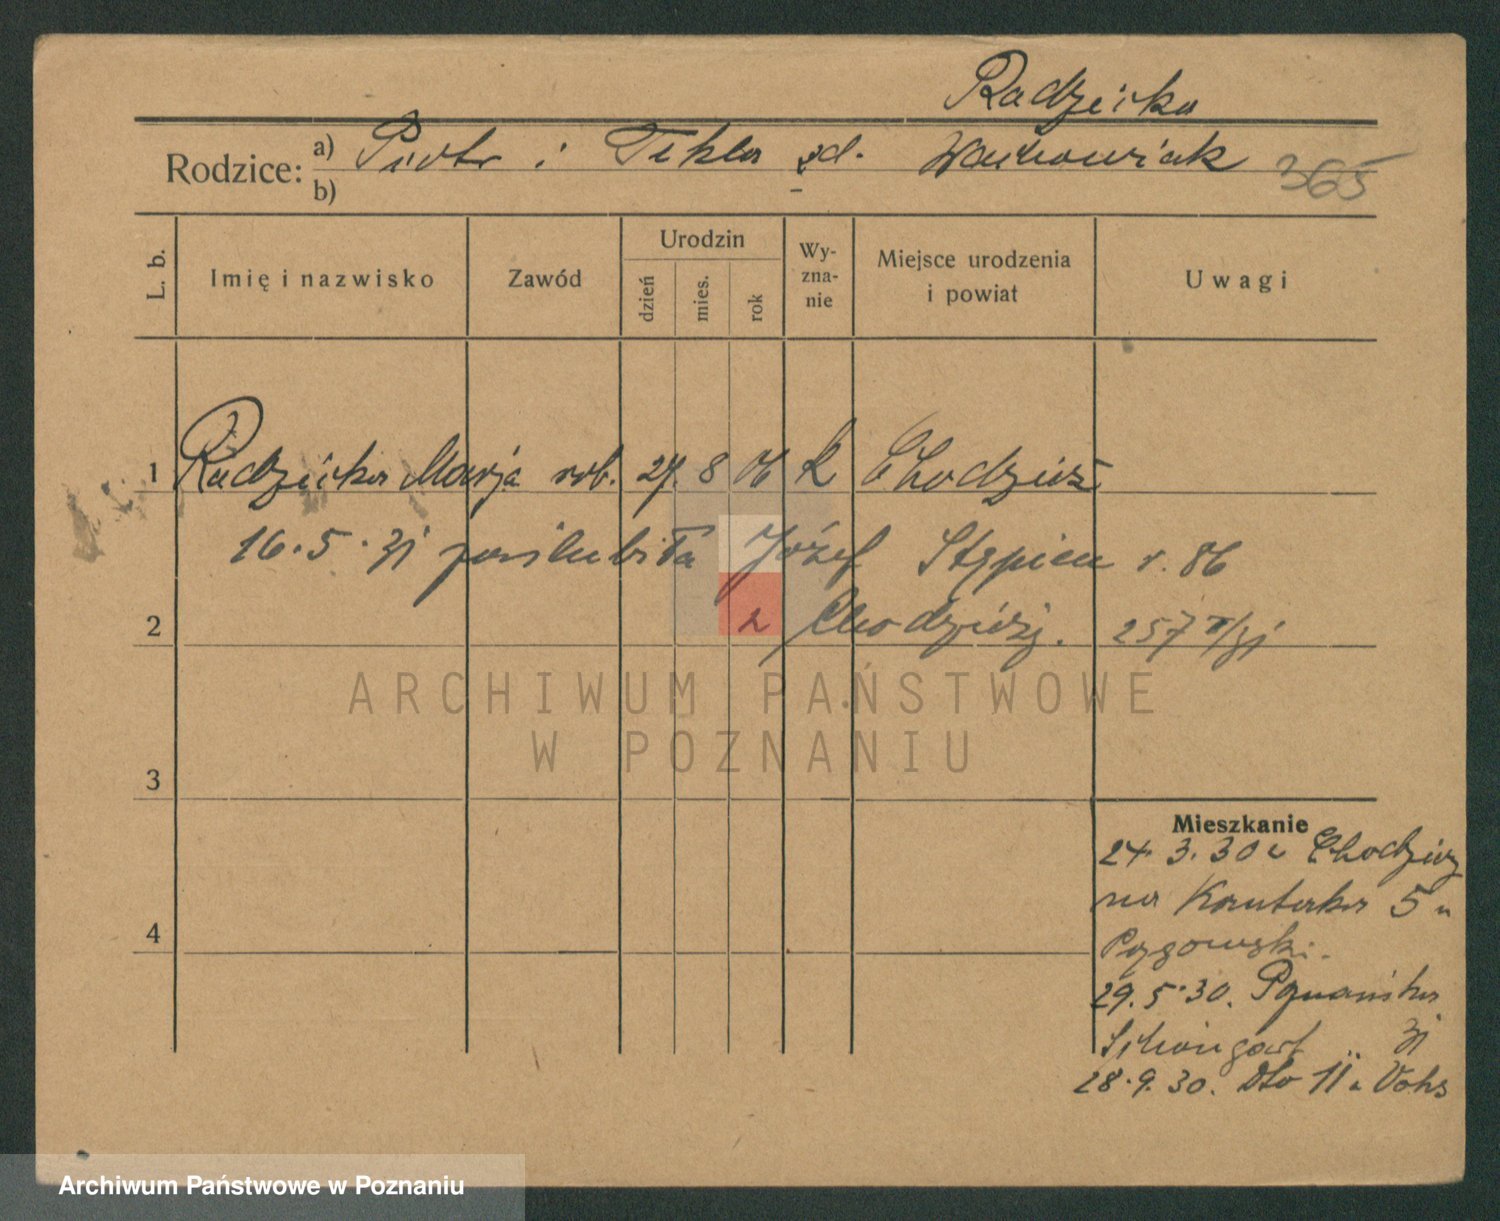 Radzicka
Rodzice: a) Piotr i Tekla zd. Wachowiak 365
b)
L. b. Imię i nazwisko Zawód Urodzin dzień mies. rok Wy-zna-nie Miejsce urodzenia i powiat Uwagi
1 Radzicka Marja rob. 27. 8 06 k Chodzież
16.5.31 poślubiła Józef Stępień r. 86
2 z Chodzieży. 257
3
ARCHIWUM PAŃSTWOWE
W POZNANIU
Mieszkanie
24.3.30 z Chodzież
na Kantaka 5 u
4
29.5.30. Poznańska
31
28.9.30. Dto 11 u Vohs
Archiwum Państwowe w Poznaniu